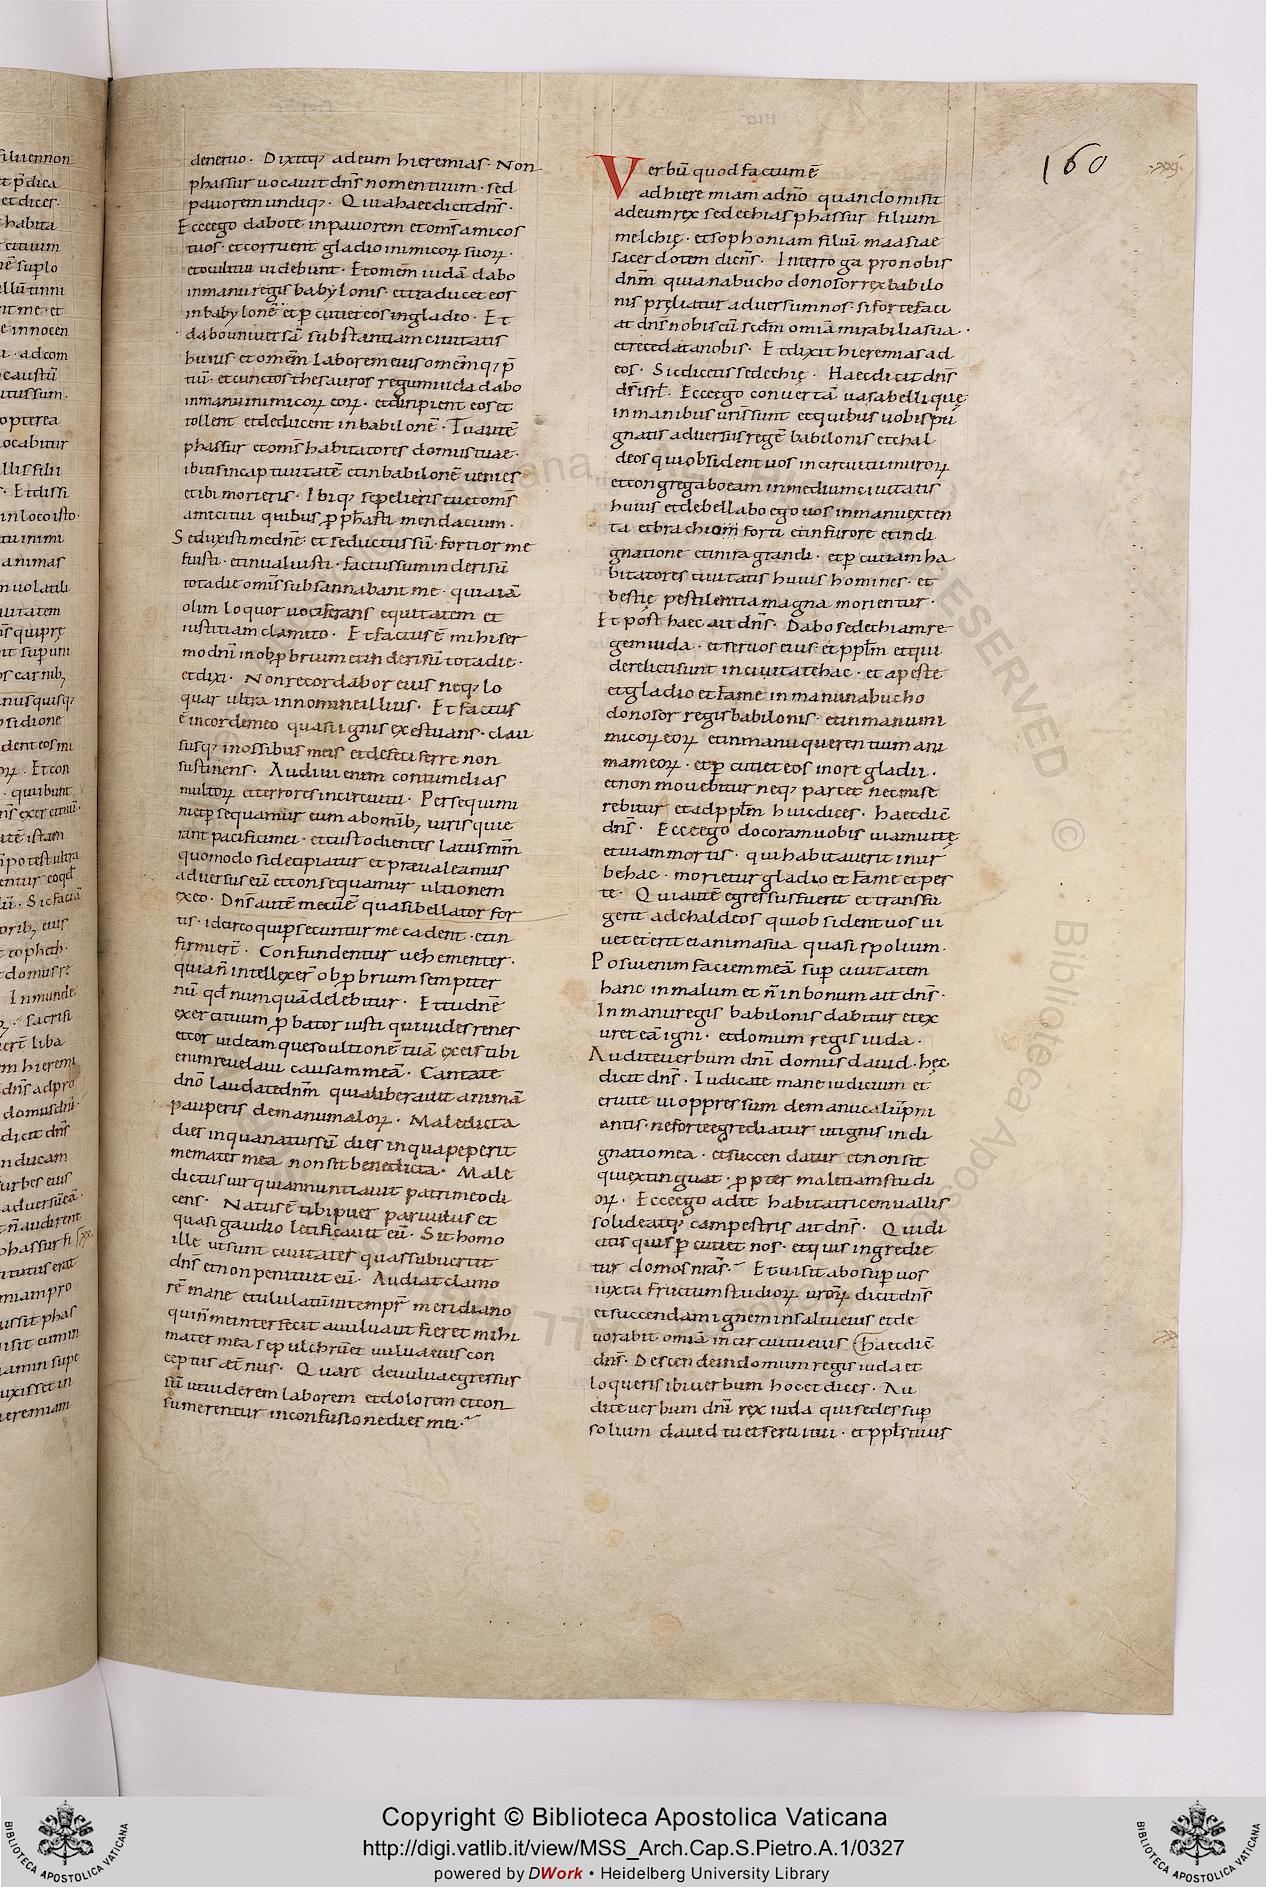 deneruo. Dixitq; adeum hieremias. Non
phassur uocauit dnS nomentuum. sed
pauoremundiq;. Quiahaecdicitdns.
Ecceego dabote inpauorem etoms amicos
tuos. etcorruent gladio inimicoꝝ suoꝝ.
etoculitui uidebunt. Etomem iudā dabo
inmanuregis babylonis. ettraducet eos
inbabylonē. etꝑcutieteos ingladio. Et
dabouniuersā substantiamciuitatis
huius. etomēm laborem eius omēmq; p̄
tiū. etcunctos thesauros regumiuda dabo
inmanuinimicoꝝ eoꝝ. etdiripient eos et
tollent etdeducent inbabilonē. Tuautē
phassur etomS habitatores domustuae.
ibitisincaptiuitatē etinbabilonē uenies
etibi morieris. Ibiq; sepelieris tuetomS
amicitui quibus ꝓphasti mendacium.
Seduxistimednē. et seductussū. fortior me
fuisti. etinualuisti. factussuminderisū
totadie omS subsannabant me. quiaiā
olim loquor uociferans iniquitatem et
iustitiam clamito. Etfactusē mihiser
modnī inobꝓbrium etin derisū totadie.
etdixi. Nonrecordabor eius neq; lo
quar ultra innomineillius. Et factus
ē incordemeo quasi ignis exestuans. clau
susq; inossibus meis etdefeci ferre non
sustinens. Audiui enim contumelias
multoꝝ etterroresincircuitu. Persequimi
nietꝑsequamur eum abomib; uiris quie
rant pacificimei. etcustodientes latusmm
quomodo sidecipiatur et praeualeamus
aduersuseū etconsequamur ultionem
exeo. DnS autē mecūē quasibellator for
tis. idcirco quiꝑsecuntur me cadent. etin
firmierT. Confundentur uehementer.
quiañ intellexer obꝓbrium sempiter
nū qd numquā delebitur. Ettudnē
exercituum ꝓbator iusti quiuides renes
etcor uideam queso ultionē tuā exeis tibi
enimreuelaui causammeā. Cantate
dno laudatednm quialiberauit animā
pauperis demanumaloꝝ. Maledicta
dies inquanatussū dies inquapeperit
memater mea nonsit benedicta. Male
dictus uir quiannuntiauit patrimeodi
cens. Natusē tibipuer paruulus et
quasi gaudio letificauit eū. Sit homo
ille utsunt ciuitates quassubuertit
dns etnonpenituit eū. Audiat clamo
rē mane etululatū intempr meridiano
quin̄meinterfecit auuluaut fieret mihi
mater mea sepulchrū et uuluaeius con
ceptus aeTnus. Quare deuuluaegressus
sū utuiderem laborem etdolorem etcon
sumerentur inconfusionedies mei.
160
Verbū quodfactumē
adhieremiam adno quandomisit
adeumrex sedechias phassur filium
melchię. etsophoniam filiū maasiae
sacerdotem dicens. Interroga pronobis
dnm quianabucho donosorrexbabilo
nis pręliatur aduersumnos. siforte faci
at dns nobiscū scdm omia mirabiliasua.
etrecedatanobis. Etdixit hieremiasad
eos. Sicdicetissedechię. Haecdicit dns
ds isrl. Ecceego conuertā uasabelliquę
inmanibus urissunt etquibus uosbispu
gnatis aduersusregē babilonis etchal
deos quiobsident uos incircuitumuroꝝ
etcongregaboeam inmediumciuitatis
huius etdebellabo ego uos inmanuexten
ta etbrachio forti etinfurore etindi
gnatione etinira grandi. etꝑcutiamha
bitatores ciuitatis huius homines. et
bestię pestilentia magna morientur.
Et post haec ait dns. Dabo sedechiamre
gemiuda. et seruos eius et pplm etqui
derelictisunt inciuitatehac. et apeste
etgladio et fame inmanunabucho
donosor regisbabilonis. etinmanuini
micoꝝ eoꝝ etinmanu querentium ani
mameoꝝ. etꝑcutiet eos inore gladii.
etnonmouebitur neq; parcet necmise
rebitur etadpplm huicdices. haecdic
dns. Ecceego docoramuobis uiamuitę
etuiammortis. quihabitauerit inur
behac. morietur gladio et fame etpes
te. Quiautē egressusfuerit et transfu
gerit adchaldeos quiobsident uos ui
uet eterit eianimasua quasi spolium.
Posuienim faciemmeā sup ciuitatem
hanc inmalum et n̄ inbonum ait dns.
Inmanuregis babilonis dabitur etex
uret eā igni. etdomum regis iuda.
Auditeuerbum dnī domus dauid. hęc
dicit dns. Iudicate mane iudicium et
eruite ui oppressum demanucalūpni
antis. neforteegrediatur utignis indi
gnatiomea. etsuccendatur etnonsit
quiextinguat. ꝓpter malitiamstudi
oꝝ. Ecceego adte habitatricemuallis
solideatq; campestris ait dns. Quidi
citis quis ꝑcutiet nos. etquis ingredie
tur domos nras. Etuisitabosup uos
iuxta fructumstudioꝝ uroꝝ dicitdns
etsuccendam ignem insaltueius etde
uorabit omia incircuitueius haecdic
dns. Descendeindomum regis iuda et
loqueris ibiuerbum hocetdices. Au
diteuerbum dnī rex iuda quisedessup
solium dauid tuetseruitui. et pplstuus
Copyright © Biblioteca Apostolica Vaticana
http://digi.vatlib.it/view/MSS_Arch.Cap.S.Pietro.A.1/0327
powered by DWork • Heidelberg University Library